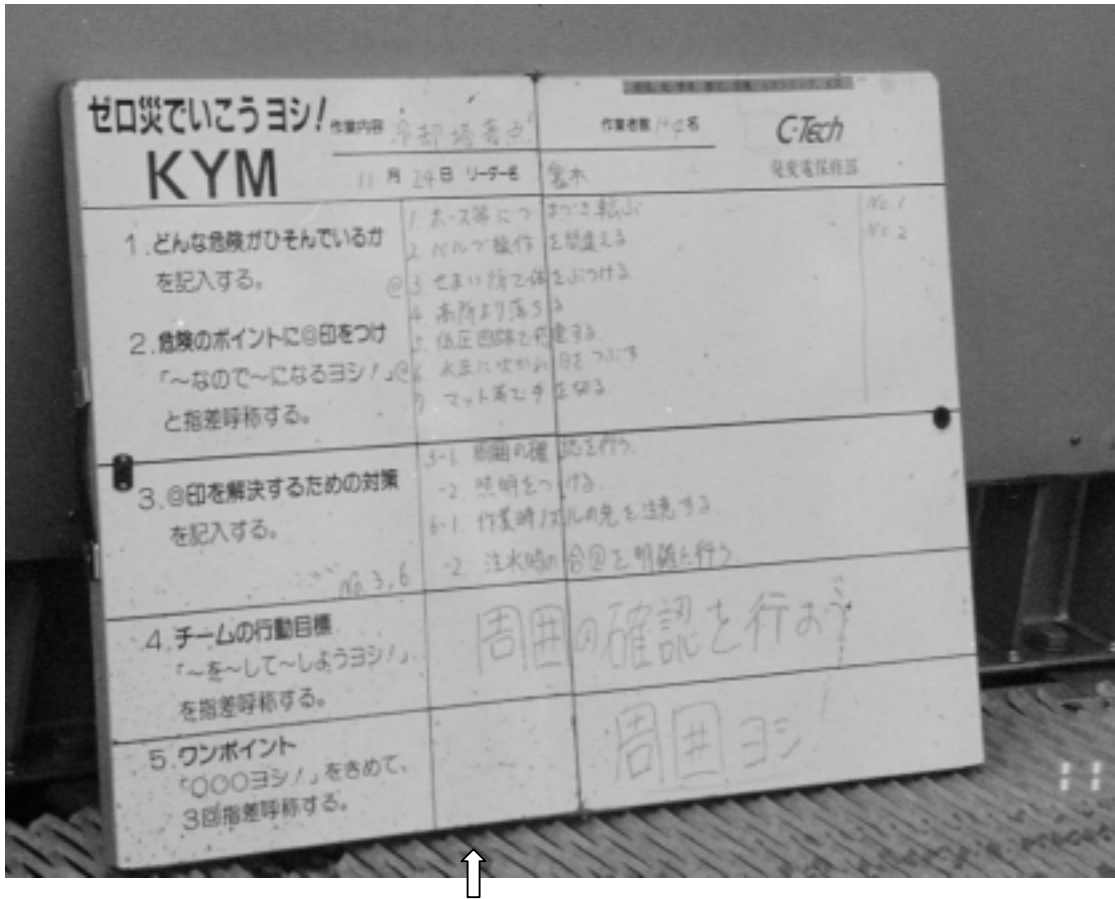 ゼロ災でいこうヨシ!
KYM
作業内容 冷却塔
作業者数 名
C-Tech
11月24日 リーダー名
発変電保修部
1.どんな危険がひそんでいるか
を記入する。
2.危険のポイントに◎印をつけ
「~なので~になるヨシ!」
と指差呼称する。
1. ホース等につまづき転ぶ
2. バルブ操作を間違える
◎3. せまい所で体をぶつける
4. 高所より落ちる
5. 低圧回路で感電する
◎6. 水圧に吹かれ目をつぶす
7. マット等で手を切る
No.1
No.2
3.◎印を解決するための対策
を記入する。
No 3,6
3-1. 周囲の確認を行う.
-2. 照明をつける.
6-1. 作業時ノズルの先を注意する
-2. 注水時の合図を明確に行う
4.チームの行動目標
「~を~して~しようヨシ!」
を指差呼称する。
周囲の確認を行おう
5.ワンポイント
「○○○ヨシ!」をきめて、
3回指差呼称する。
周囲ヨシ!